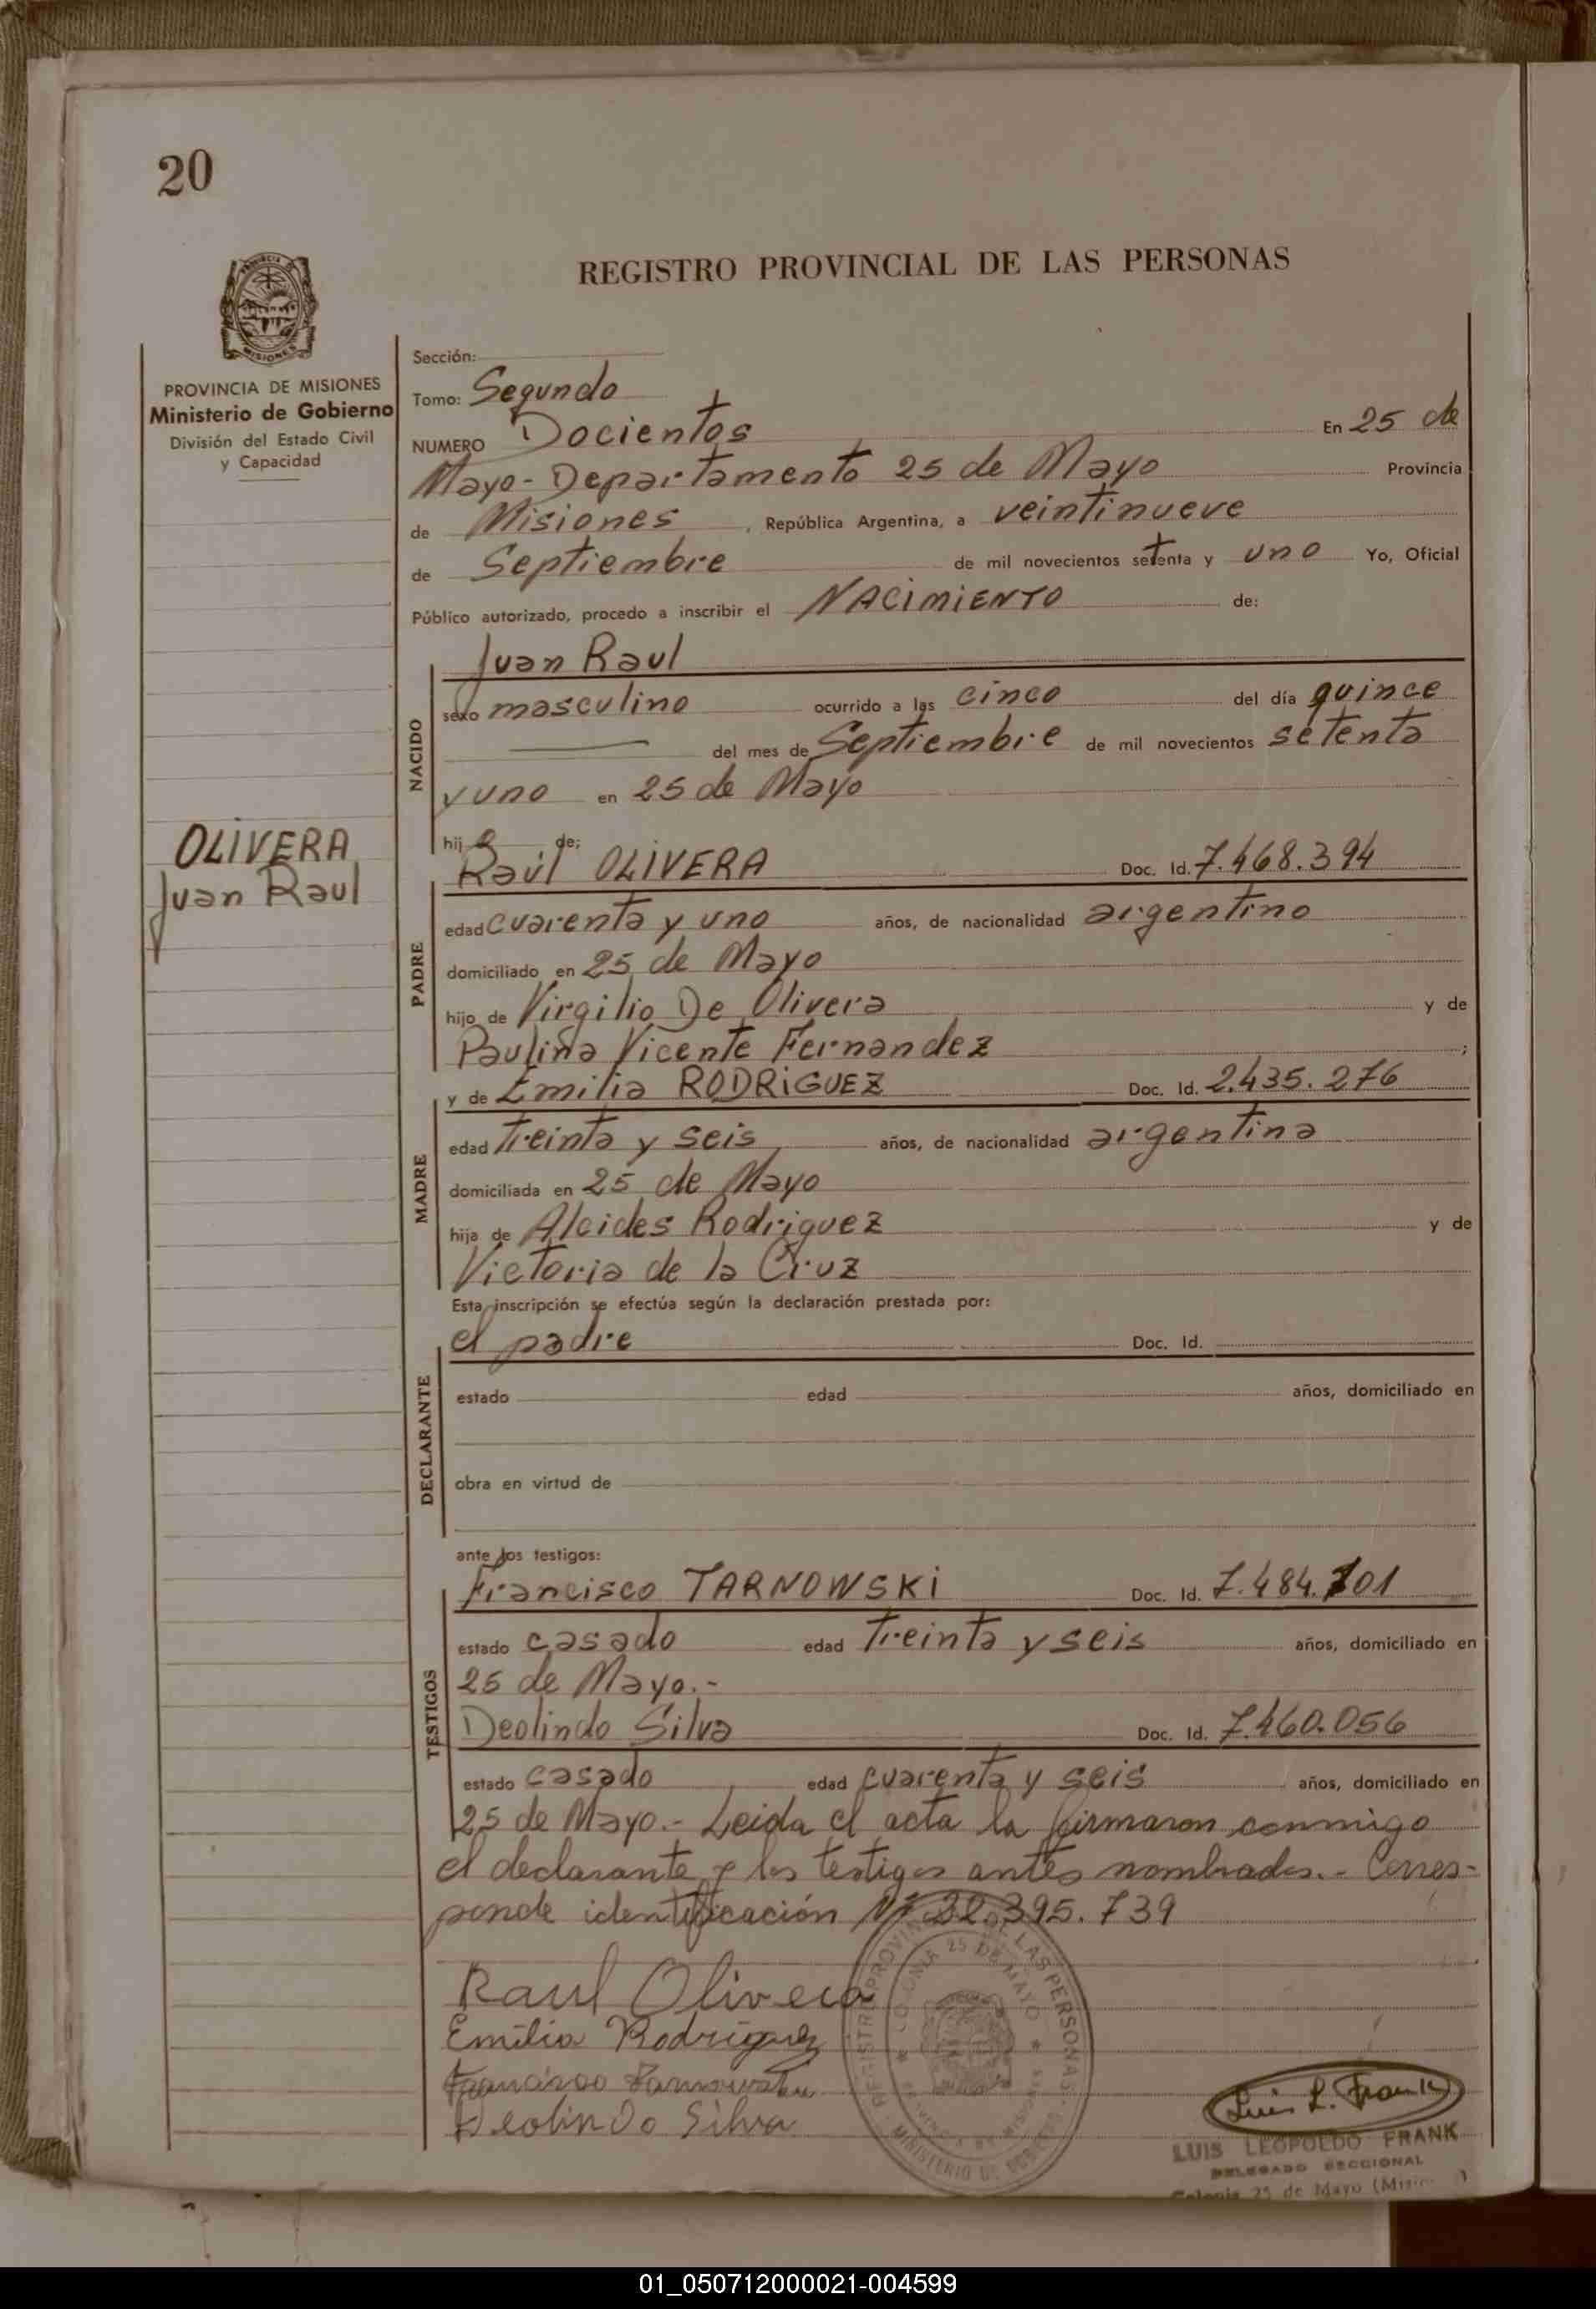 20
REGISTRO PROVINCIAL DE LAS PERSONAS
PROVINCIA DE MISIONES
Ministerio de Gobierno
División del Estado Civil
y Capacidad
OLIVERA
Juan Raul
Sección:
Tomo: Segundo
NUMERO Docientos En 25 de
Mayo - Departamento 25 de Mayo Provincia
de Misiones, República Argentina, a veintinueve
de Septiembre de mil novecientos setenta y uno Yo, Oficial
Público autorizado, procedo a inscribir el NACIMIENTO de:
Juan Raul
NACIDO
sexo masculino ocurrido a las cinco del día quince
del mes de Septiembre de mil novecientos setenta
y uno en 25 de Mayo
hijo de:
Raúl OLIVERA Doc. Id. 7.468.394
PADRE
edad cuarenta y uno años, de nacionalidad argentino
domiciliado en 25 de Mayo
hijo de Virgilio De Olivera y de
Paulina Vicente Fernandez ;
y de Emilia RODRIGUEZ Doc. Id. 2.435.276
MADRE
edad treinta y seis años, de nacionalidad argentina
domiciliada en 25 de Mayo
hija de Alcides Rodriguez y de
Victoria de la Cruz
Esta inscripción se efectúa según la declaración prestada por:
el padre Doc. Id.
DECLARANTE
estado edad años, domiciliado en
obra en virtud de
ante los testigos:
Francisco TARNOWSKI Doc. Id. 7.484.701
TESTIGOS
estado casado edad treinta y seis años, domiciliado en
25 de Mayo.-
Deolindo Silva Doc. Id. 7.460.056
estado casado edad cuarenta y seis años, domiciliado en
25 de Mayo.- Leida el acta la firmaron conmigo
el declarante y los testigos antes nombrados.- Corres-
ponde identificación Nº 22.395.739
Raul Olivera
Emilia Rodriguez
Francisco Tarnowski
Deolindo Silva
REGISTRO PROVINCIAL DE LAS PERSONAS
COLONIA 25 DE MAYO
PROVINCIA DE MISIONES
MINISTERIO DE GOBIERNO
Luis L. Frank
LUIS LEOPOLDO FRANK
DELEGADO SECCIONAL
Colonia 25 de Mayo
01_050712000021-004599